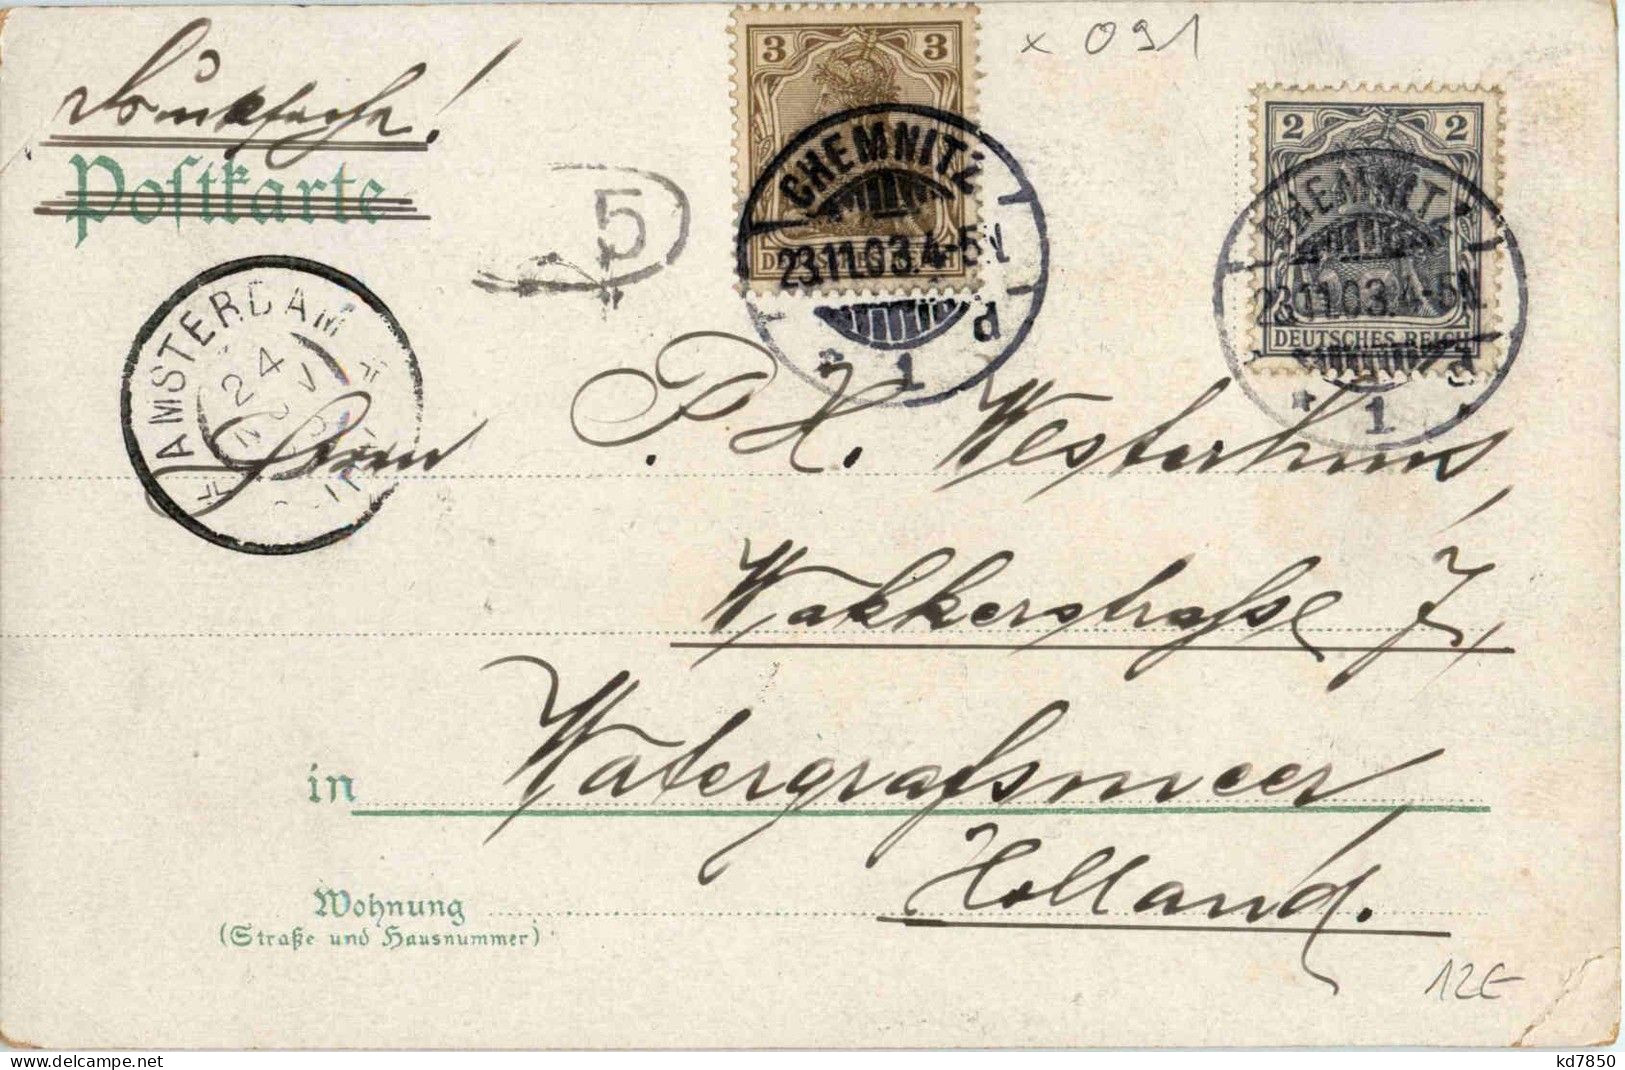 x 091
Drucksache!
Postkarte
3 3
DEUTSCHES REICH
CHEMNITZ
23.11.03. 4-5N.
* 1 d
2 2
DEUTSCHES REICH
CHEMNITZ
23.11.03. 4-5N.
* 1 d
5
AMSTERDAM
24
NOV
Herrn P. H. Westerhuis,
Wakkerstraße 7,
in Watergrafsmeer
Holland.
Wohnung
(Straße und Hausnummer)
12E
kd7850